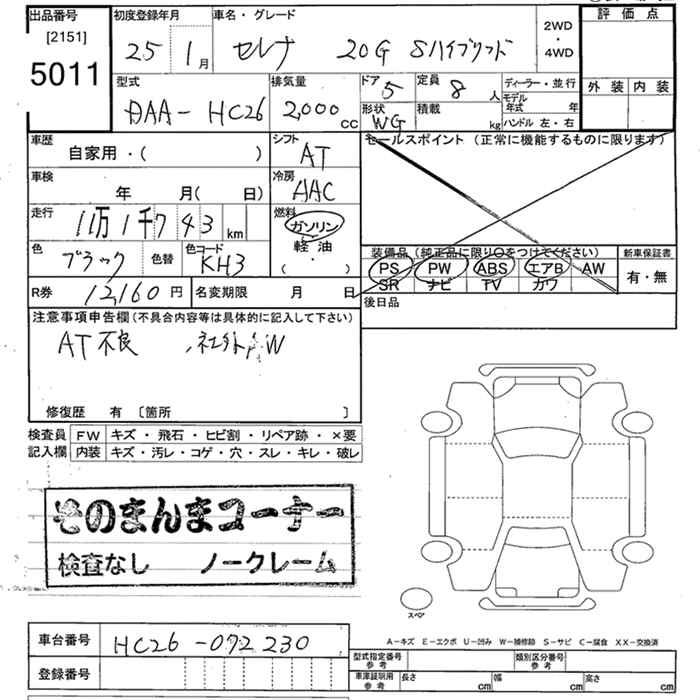 出品番号
[2151]
5011
初度登録年月
25 1月
車名・グレード
セレナ 20G Sハイブリッド
2WD
・
4WD
評価点
外装 内装
型式
DAA-HC26
排気量
2,000cc
ドア
5
定員
8人
ディーラー・並行
形状
WG
積載
kg
モデル年式 年
ハンドル 左・右
車歴
自家用・( )
シフト
AT
セールスポイント (正常に機能するものに限ります)
車検
年 月( 日)
冷房
AAC
走行
11万1千743km
燃料
ガソリン
軽油
( ・ )
色
ブラック
色替
色コード
KH3
装備品 (純正品に限り○をつけてください)
PS PW ABS エアB AW
SR ナビ TV カワ
新車保証書
有・無
R券
12,160円
名変期限 月 日
後日品
注意事項申告欄(不具合内容等は具体的に記入して下さい)
AT不良
修復歴 有 [箇所 ]
検査員
記入欄
FW キズ・飛石・ヒビ割・リペア跡・×要
内装 キズ・汚レ・コゲ・穴・スレ・キレ・破レ
そのまんまコーナー
検査なし ノークレーム
スペア
A-キズ E-エクボ U-凹み W-補修跡 S-サビ C-腐食 XX-交換済
車台番号
HC26-072230
登録番号
型式指定番号
参考
類別区分番号
参考
車庫証明用
参考
長さ cm
幅 cm
高さ cm